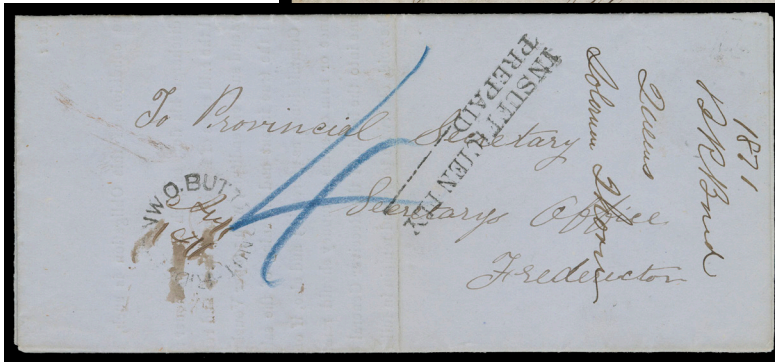 To Provincial Secretary
Secretarys Office
Fredericton
4
INSUFFICIENTLY
PREPAID
W.O. BUT
1871
Bond
Queens
Solomon